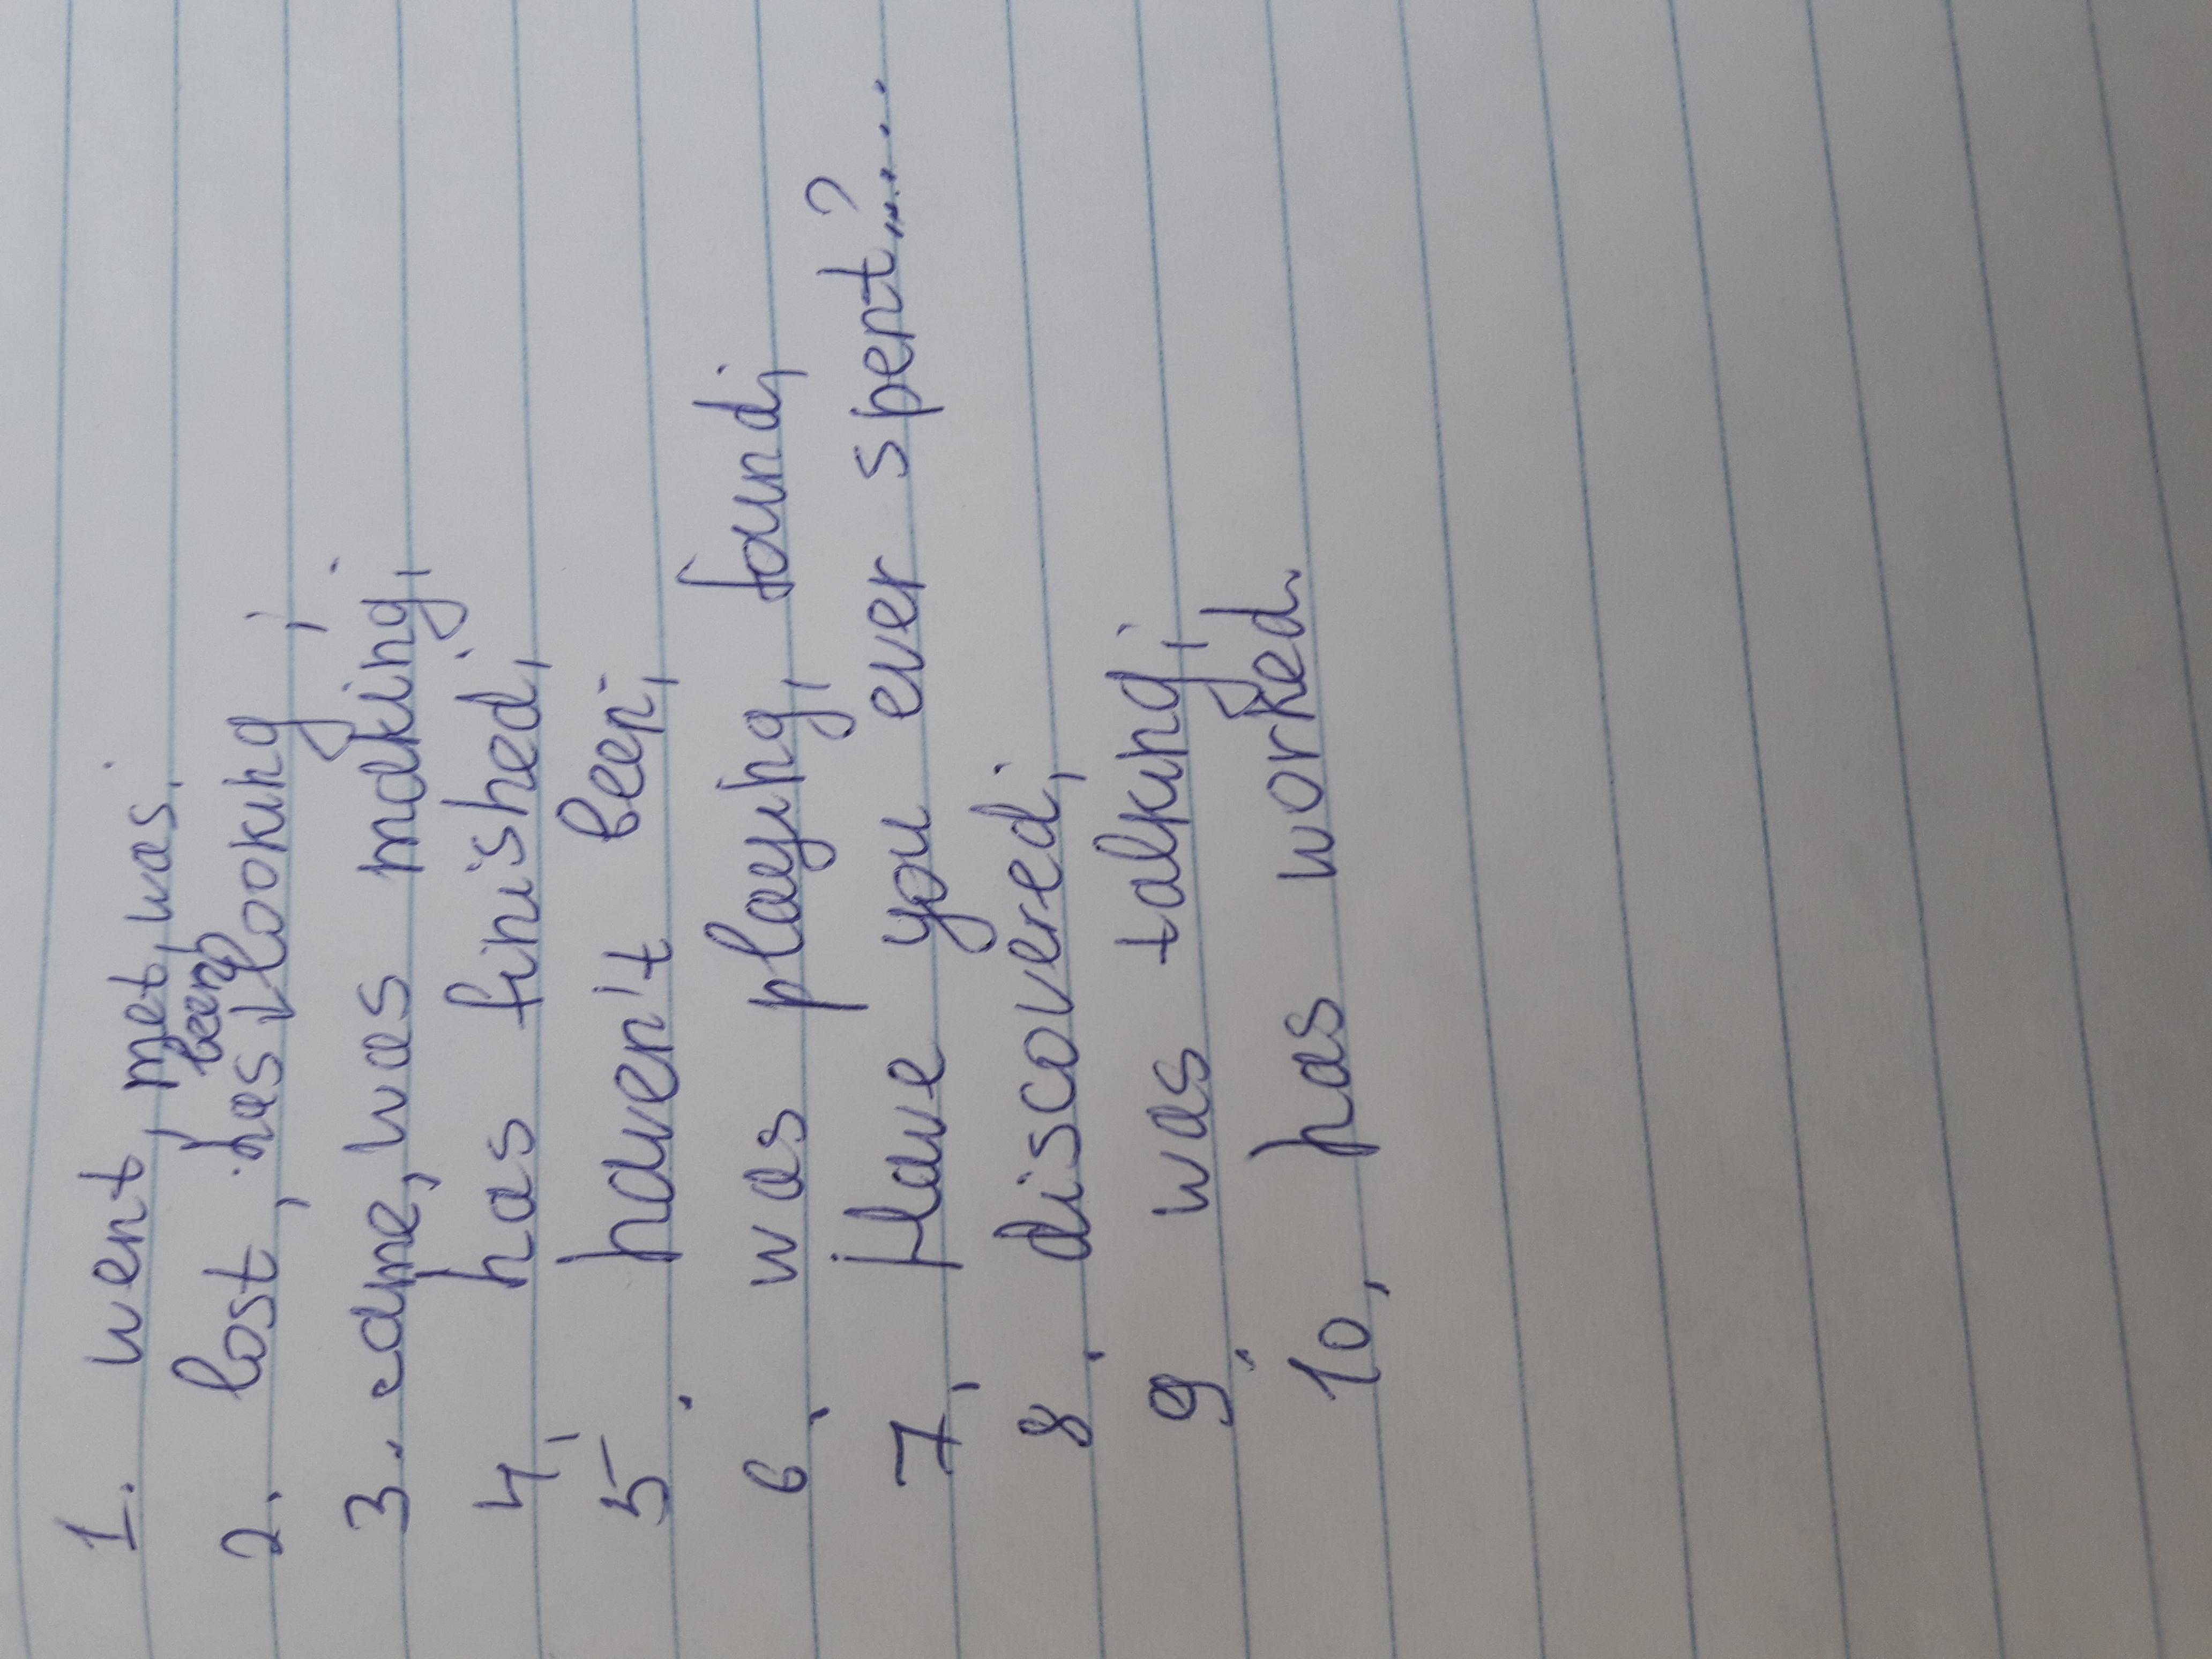 1. went, met, was;
2. lost, has been looking;
3. came, was making;
4. has finished;
5. haven't been;
6. was playing, found;
7. Have you ever spent...?.....
8. discovered;
9. was talking;
10, has worked.